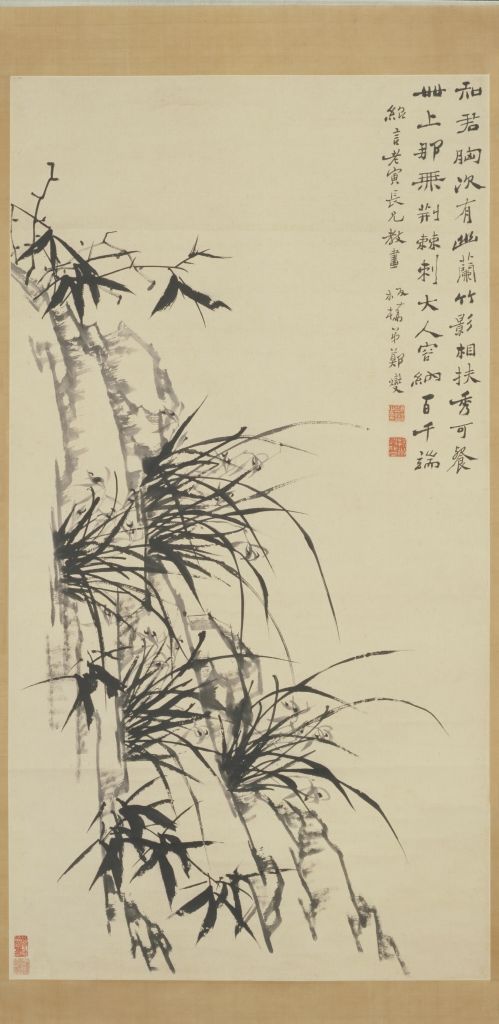 知君胸次有幽蘭竹影相扶秀可餐
世上那無荊棘刺大人容納百千端
紹言老寅長兄教畫 板橋弟鄭燮